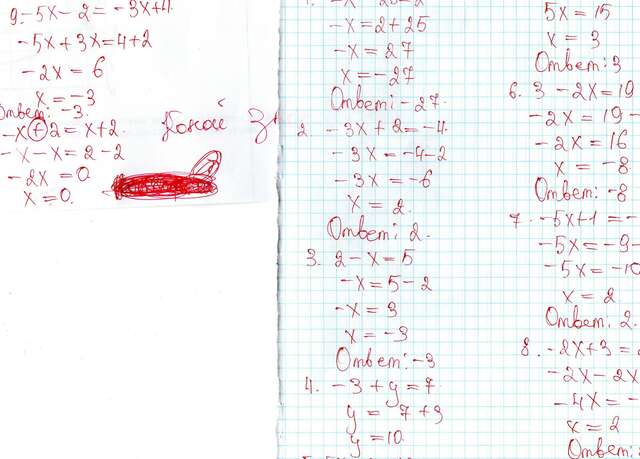 9. -5x-2=-3x+4.
-5x+3x=4+2
-2x=6
x=-3
Ответ: -3.
-x+2=x+2.
-x-x=2-2
-2x=0
x=0.
Какой
-x=2+25
-x=27
x=-27
Ответ: -27.
2. -3x+2=-4.
-3x=-4-2
-3x=-6
x=2.
Ответ: 2.
3. 2-x=5
-x=5-2
-x=3
x=-3
Ответ: -3
4. -3+y=7.
y=7+3
y=10.
5x=15
x=3
Ответ: 3
6. 3-2x=19
-2x=19-
-2x=16
x=-8
Ответ: -8
7. -5x+1=-
-5x=-9-
-5x=-10
x=2
Ответ: 2.
8. -2x+3=
-2x-2x
-4x=-
x=2
Ответ: